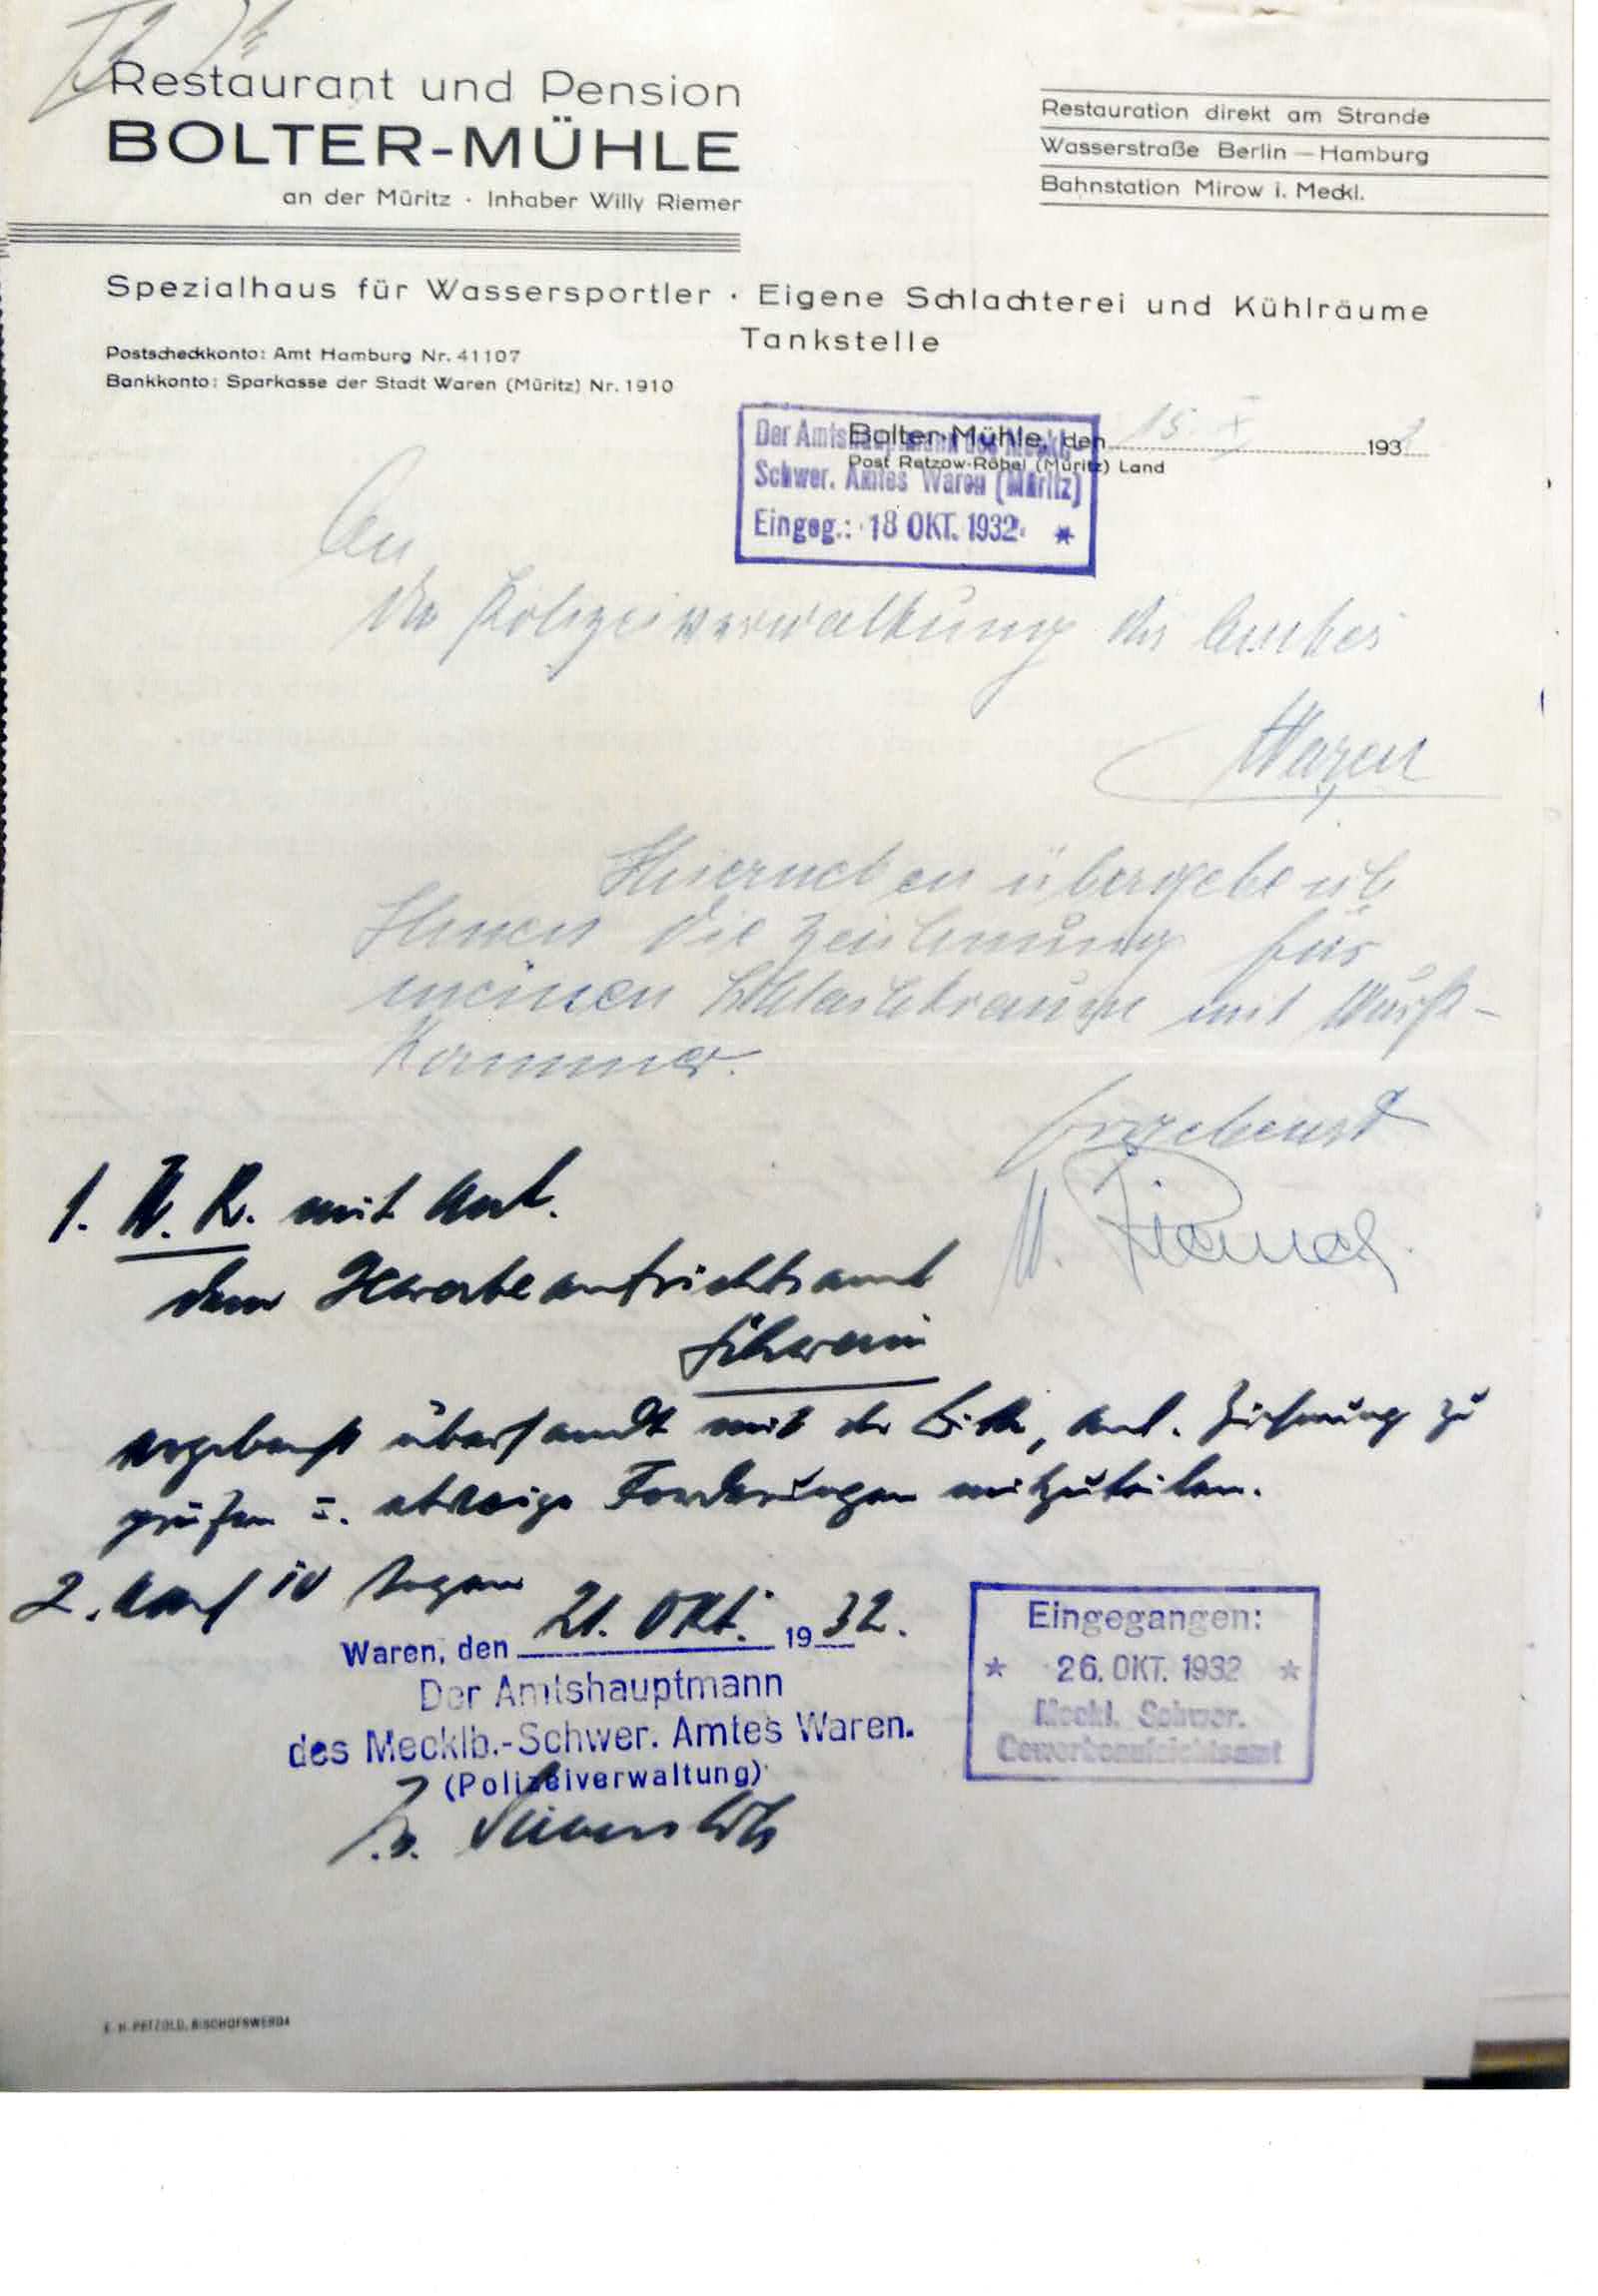 Restaurant und Pension
BOLTER-MÜHLE
an der Müritz · Inhaber Willy Riemer
Restauration direkt am Strande
Wasserstraße Berlin — Hamburg
Bahnstation Mirow i. Meckl.
Spezialhaus für Wassersportler · Eigene Schlachterei und Kühlräume
Tankstelle
Postscheckkonto: Amt Hamburg Nr. 41107
Bankkonto: Sparkasse der Stadt Waren (Müritz) Nr. 1910
Bolter-Mühle, den 15. X 1932
Post Retzow-Röbel (Müritz) Land
Der Amtshauptmann des Meckl.
Schwer. Amtes Waren (Müritz)
Eingeg.: 18 OKT. 1932
An
die Polizeiverwaltung des Amtes
Waren
Hierneben übergebe ich
Ihnen die Zeichnung für
meinen Schlachtraum mit Wurst-
kammer.
Ergebenst
W. Riemer.
1. U. R. mit Anl.
dem Gewerbeaufsichtsamt
Schwerin
ergebenst übersandt mit der Bitte, anl. Zeichnung zu
prüfen u. etwaige Forderungen mitzuteilen.
2. Nach 10 Tagen
Waren, den 21. Okt. 1932.
Der Amtshauptmann
des Mecklb.-Schwer. Amtes Waren.
(Polizeiverwaltung)
Eingegangen:
26. OKT. 1932
Meckl. Schwer.
Gewerbeaufsichtsamt
E. H. PETZOLD, BISCHOFSWERDA